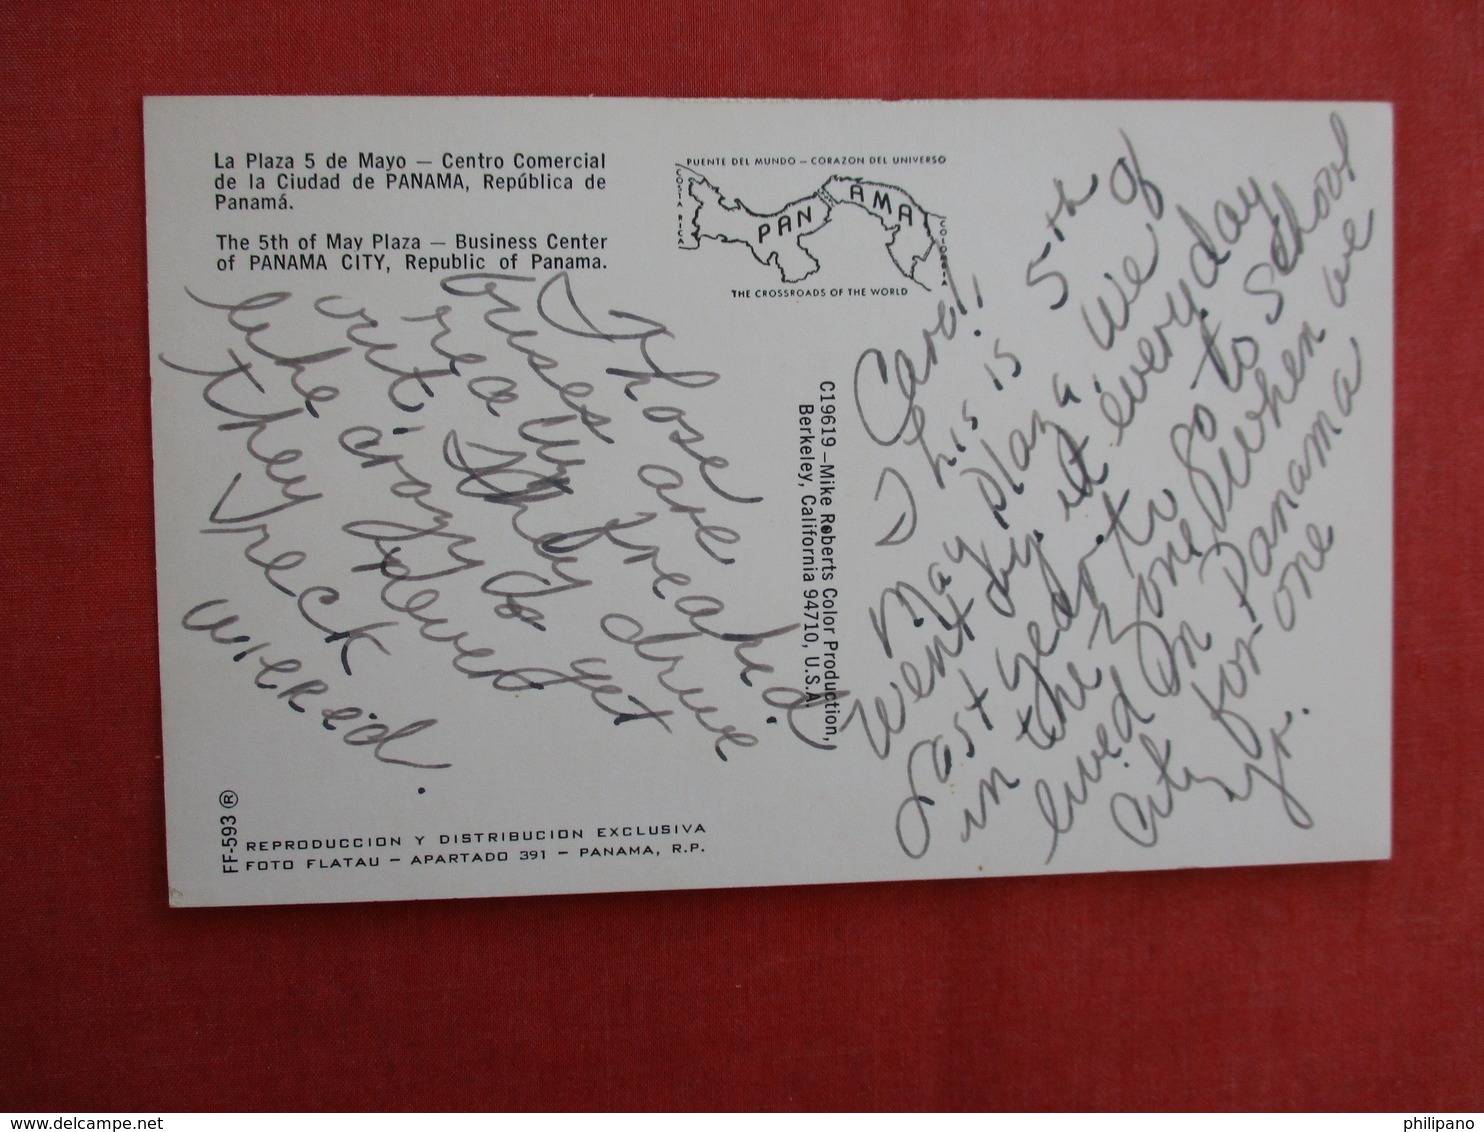 La Plaza 5 de Mayo — Centro Comercial
de la Ciudad de PANAMA, República de
Panamá.
The 5th of May Plaza — Business Center
of PANAMA CITY, Republic of Panama.
PUENTE DEL MUNDO – CORAZON DEL UNIVERSO
COSTA RICA
PANAMA
COLOMBIA
THE CROSSROADS OF THE WORLD
C19619 – Mike Roberts Color Production,
Berkeley, California 94710, U.S.A.
Carol!
This is 5th of
May plaza. We
went by it everyday
last year to go to school
in the Zone when we
lived in Panama
City for one
yr.
Those are
buses
really freaked
out. They drive
like crazy & yet
they never
wreck
wiereid.
FF-593 ®
REPRODUCCION Y DISTRIBUCION EXCLUSIVA
FOTO FLATAU – APARTADO 391 – PANAMA, R.P.
www.delcampe.net
philipano